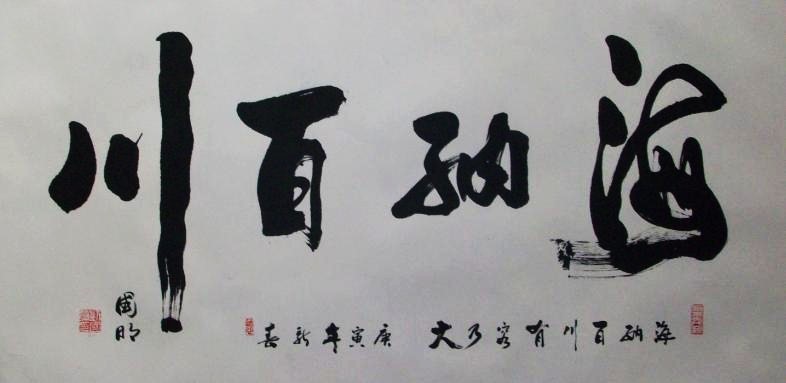 海納百川
海納百川有容乃大 庚寅年新春
國明